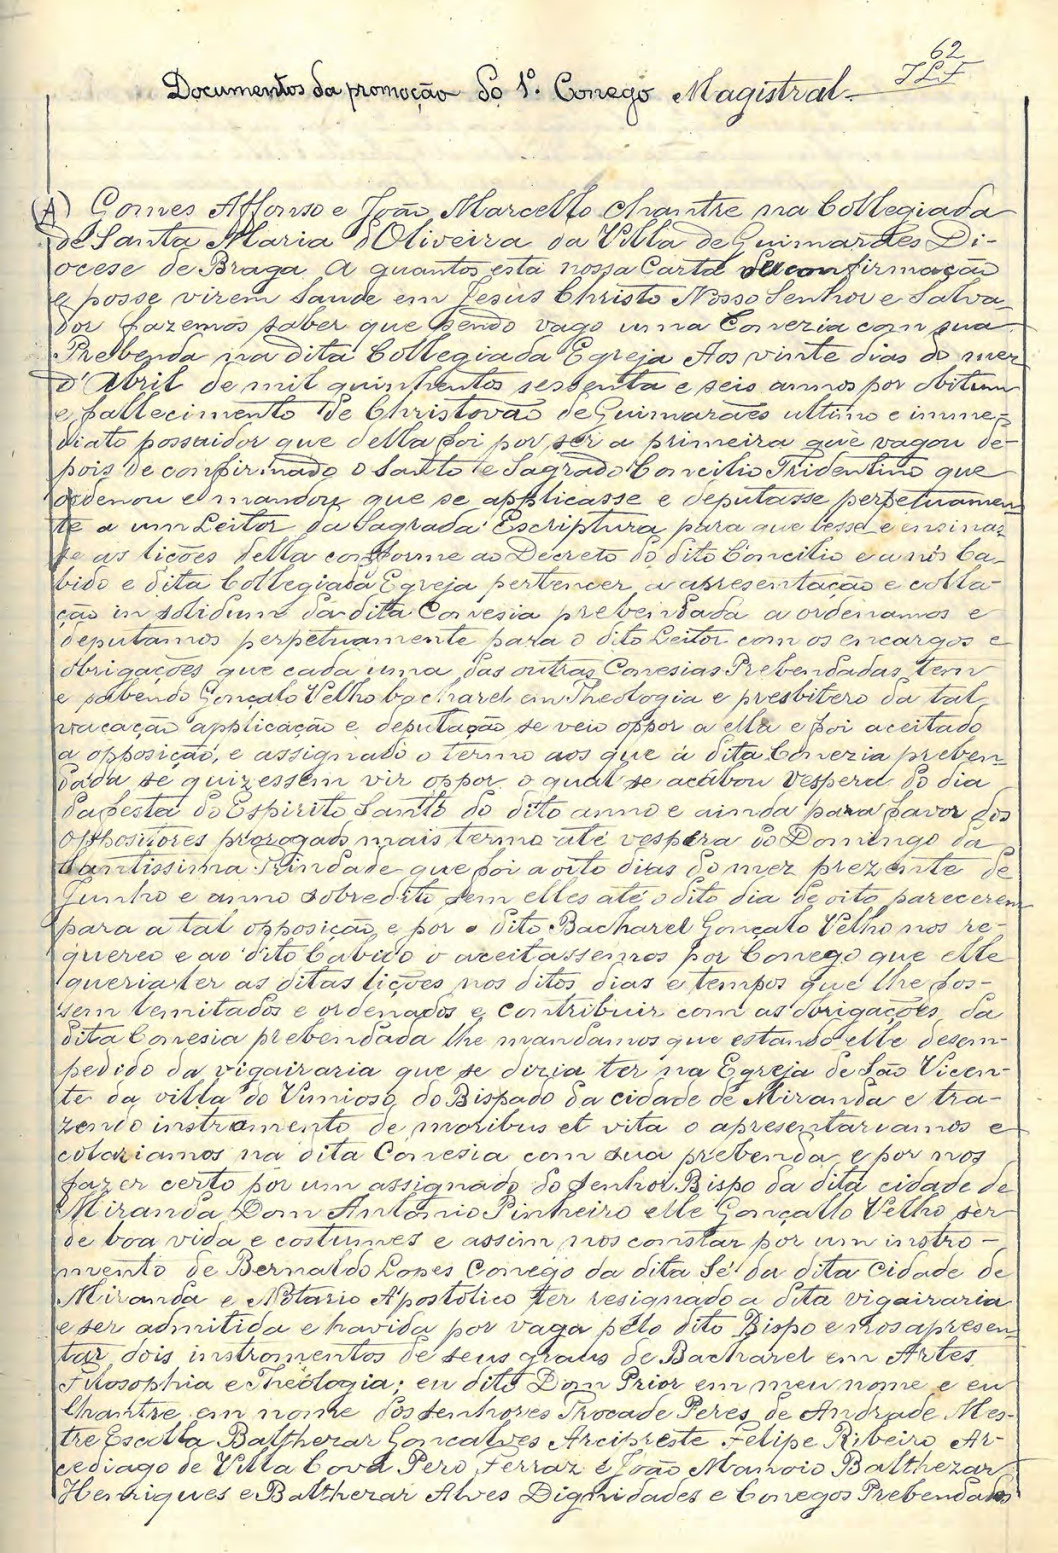 62
Documentos da promoção do 1º. Conego Magistral.
(A) Gomes Affonso e João Marcello Chantre na Collegiada
de Santa Maria d'Oliveira da Villa de Guimarães Di-
ocese de Braga A quantos esta nossa Carta de confirmação
e posse virem Saude em Jesus Christo Nosso Senhor e Salva-
dor fazemos saber que sendo vago uma Conezia com sua
Prebenda na dita Collegiada Egreja Aos vinte dias do mez
d'Abril de mil quinhentos sessenta e seis annos por obitum
e fallecimento de Christovão de Guimarães ultimo e imme-
diato possuidor que della foi por ser a primeira que vagou de-
pois de confirmado o Santo e Sagrado Concilio Tridentino que
ordenou e mandou que se applicasse e deputasse perpetuamen-
te a um Leitor da Sagrada Escriptura para que lesse e ensinas-
se as lições della conforme ao Decreto do dito Concilio e a nós Ca-
bido e dita Collegiada Egreja pertencer a apresentação e colla-
ção in solidum da dita Conesia prebendada a ordenamos e
deputamos perpetuamente para o dito Leitor com os encargos e
obrigações que cada uma das outras Conesias Prebendadas tem
e sabendo Gonçalo Velho bacharel em Theologia e presbitero da tal
vacação applicação e deputação se veio oppor a ella e foi aceitado
a opposição, e assignado o termo aos que á dita Conezia preben-
dada se quizessem vir oppor o qual se acabou vespera do dia
da festa do Espirito Santo do dito anno e ainda para favor dos
Oppositores prorogado mais termo até vespera do Domingo da
Santissima Trindade que foi a oito dias do mez prezente de
Junho e anno sobredito sem elles até o dito dia de oito parecerem
para a tal opposição e por o dito Bacharel Gonçalo Velho nos re-
quereo e ao dito Cabido o aceitassemos por Conego que elle
queria ler as ditas lições nos ditos dias e tempos que lhe fos-
sem lemitados e ordenados e contribuir com as obrigações da
dita Conesia prebendada lhe mandamos que estando elle desem-
pedido da vigairaria que se dizia ter na Egreja de São Vicen-
te da villa do Vimioso do Bispado da cidade de Miranda e tra-
zendo instromento de moribus et vita o apresentariamos e
colariamos na dita Conesia com sua prebenda e por nos
fazer certo por um assignado do Senhor Bispo da dita cidade de
Miranda Dom Antonio Pinheiro elle Gonçallo Velho ser
de boa vida e costumes e assim nos constar por um instro-
mento de Bernaldo Lopes Conego da dita Sé da dita Cidade de
Miranda e Notario Apostolico ter resignado a dita vigairaria
e ser admitida e havida por vaga pelo dito Bispo e nos apresen-
tar dois instromentos de seus graus de Bacharel em Artes
Filosophia e Theologia; eu dito Dom Prior em meu nome e eu
Chantre em nome dos Senhores Peres de Andrade Mes-
tre Escolla Balthezar Goncalves Arcipreste Felipe Ribeiro Ar-
cediago de Villa Cova Pero Ferraz e João Balthezar
Henriques e Balthezar Alves Dignidades e Conegos Prebendados